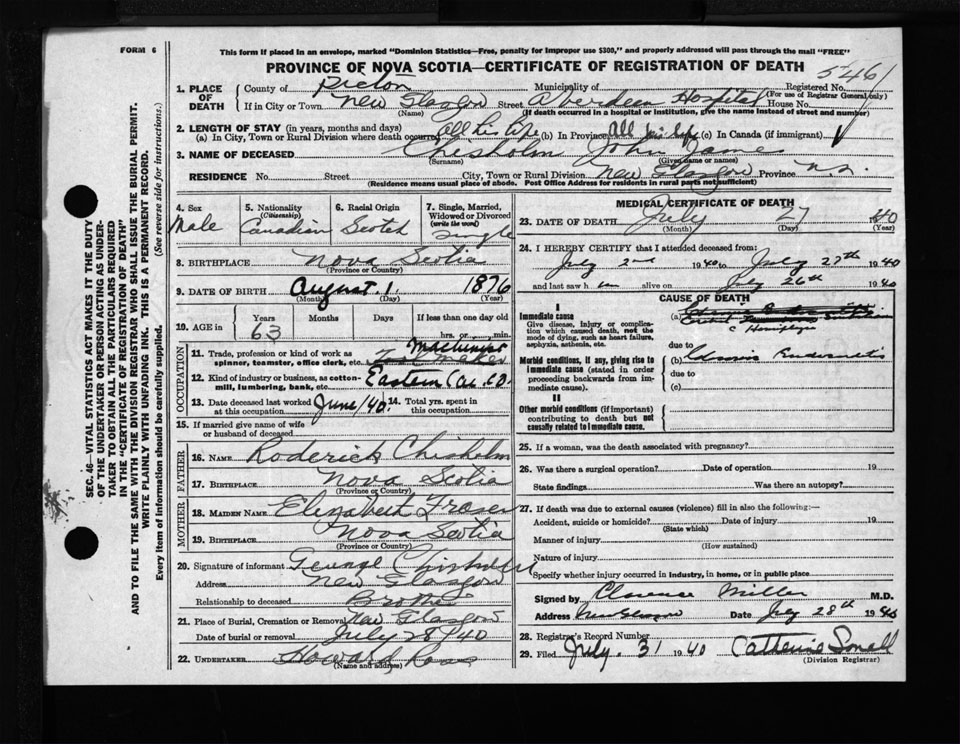 FORM 6
This form if placed in an envelope, marked "Dominion Statistics—Free, penalty for improper use $300," and properly addressed will pass through the mail "FREE"
PROVINCE OF NOVA SCOTIA—CERTIFICATE OF REGISTRATION OF DEATH
5461
SEC. 46—VITAL STATISTICS ACT MAKES IT THE DUTY
OF THE UNDERTAKER OR PERSON ACTING AS UNDER-
TAKER TO OBTAIN ALL THE PARTICULARS REQUIRED
IN THE "CERTIFICATE OF REGISTRATION OF DEATH"
AND TO FILE THE SAME WITH THE DIVISION REGISTRAR WHO SHALL ISSUE THE BURIAL PERMIT.
WRITE PLAINLY WITH UNFADING INK. THIS IS A PERMANENT RECORD.
Every item of information should be carefully supplied. (See reverse side for instructions.)
1. PLACE OF DEATH County of Pictou Municipality of Registered No.
(For use of Registrar General only)
If in City or Town New Glasgow Street Aberdeen Hospital House No.
(Name) (If death occurred in a hospital or institution, give the name instead of street and number)
2. LENGTH OF STAY (in years, months and days)
(a) In City, Town or Rural Division where death occurred All his life (b) In Province All his life (c) In Canada (if immigrant)
3. NAME OF DECEASED Chisholm John James
(Surname) (Given name or names)
RESIDENCE No. Street City, Town or Rural Division New Glasgow Province N.S.
(Residence means usual place of abode. Post Office Address for residents in rural parts not sufficient)
4. Sex Male
5. Nationality (Citizenship) Canadian
6. Racial Origin Scotch
7. Single, Married, Widowed or Divorced (write the word) Single
8. BIRTHPLACE Nova Scotia
(Province or Country)
9. DATE OF BIRTH August 1 1876
(Month) (Day) (Year)
10. AGE in Years 63 Months Days If less than one day old
hrs. or min.
OCCUPATION
11. Trade, profession or kind of work as spinner, teamster, office clerk, etc. Machinist
12. Kind of industry or business, as cotton-mill, lumbering, bank, etc. Eastern Car Co.
13. Date deceased last worked at this occupation June/40
14. Total yrs. spent in this occupation
15. If married give name of wife or husband of deceased
FATHER
16. NAME Roderick Chisholm
17. BIRTHPLACE Nova Scotia
(Province or Country)
MOTHER
18. MAIDEN NAME Elizabeth Fraser
19. BIRTHPLACE Nova Scotia
(Province or Country)
20. Signature of informant George Chisholm
Address New Glasgow
Relationship to deceased Brother
21. Place of Burial, Cremation or Removal New Glasgow
Date of burial or removal July 28 1940
22. UNDERTAKER Howard Ross
(Name and address)
MEDICAL CERTIFICATE OF DEATH
23. DATE OF DEATH July 27 40
(Month) (Day) (Year)
24. I HEREBY CERTIFY that I attended deceased from:
July 2nd 1940 to July 27th 1940
and last saw him alive on July 26th 1940
CAUSE OF DEATH
I
Immediate cause (a)
Give disease, injury or complication which caused death, not the mode of dying, such as heart failure, asphyxia, asthenia, etc.
c Hemiplegia
due to
Morbid conditions, if any, giving rise to immediate cause (stated in order proceeding backwards from immediate cause). (b) Chronic
due to
(c)
II
Other morbid conditions (if important) contributing to death but not causally related to immediate cause.
25. If a woman, was the death associated with pregnancy?
26. Was there a surgical operation? Date of operation 19
State findings Was there an autopsy?
27. If death was due to external causes (violence) fill in also the following:—
Accident, suicide or homicide? Date of injury 19
(State which)
Manner of injury
(How sustained)
Nature of injury
Specify whether injury occurred in industry, in home, or in public place
Signed by Clarence Miller M.D.
Address New Glasgow Date July 28th 1940
28. Registrar's Record Number
29. Filed July 31 1940 Catherine
(Division Registrar)